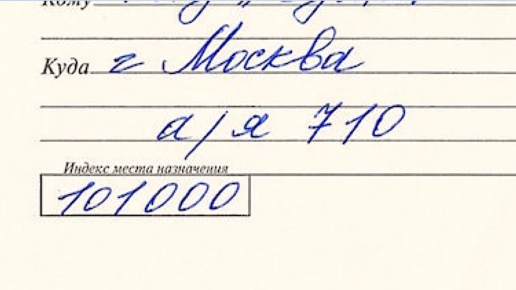 Кому
Куда г Москва
а/я 710
Индекс места назначения
101000